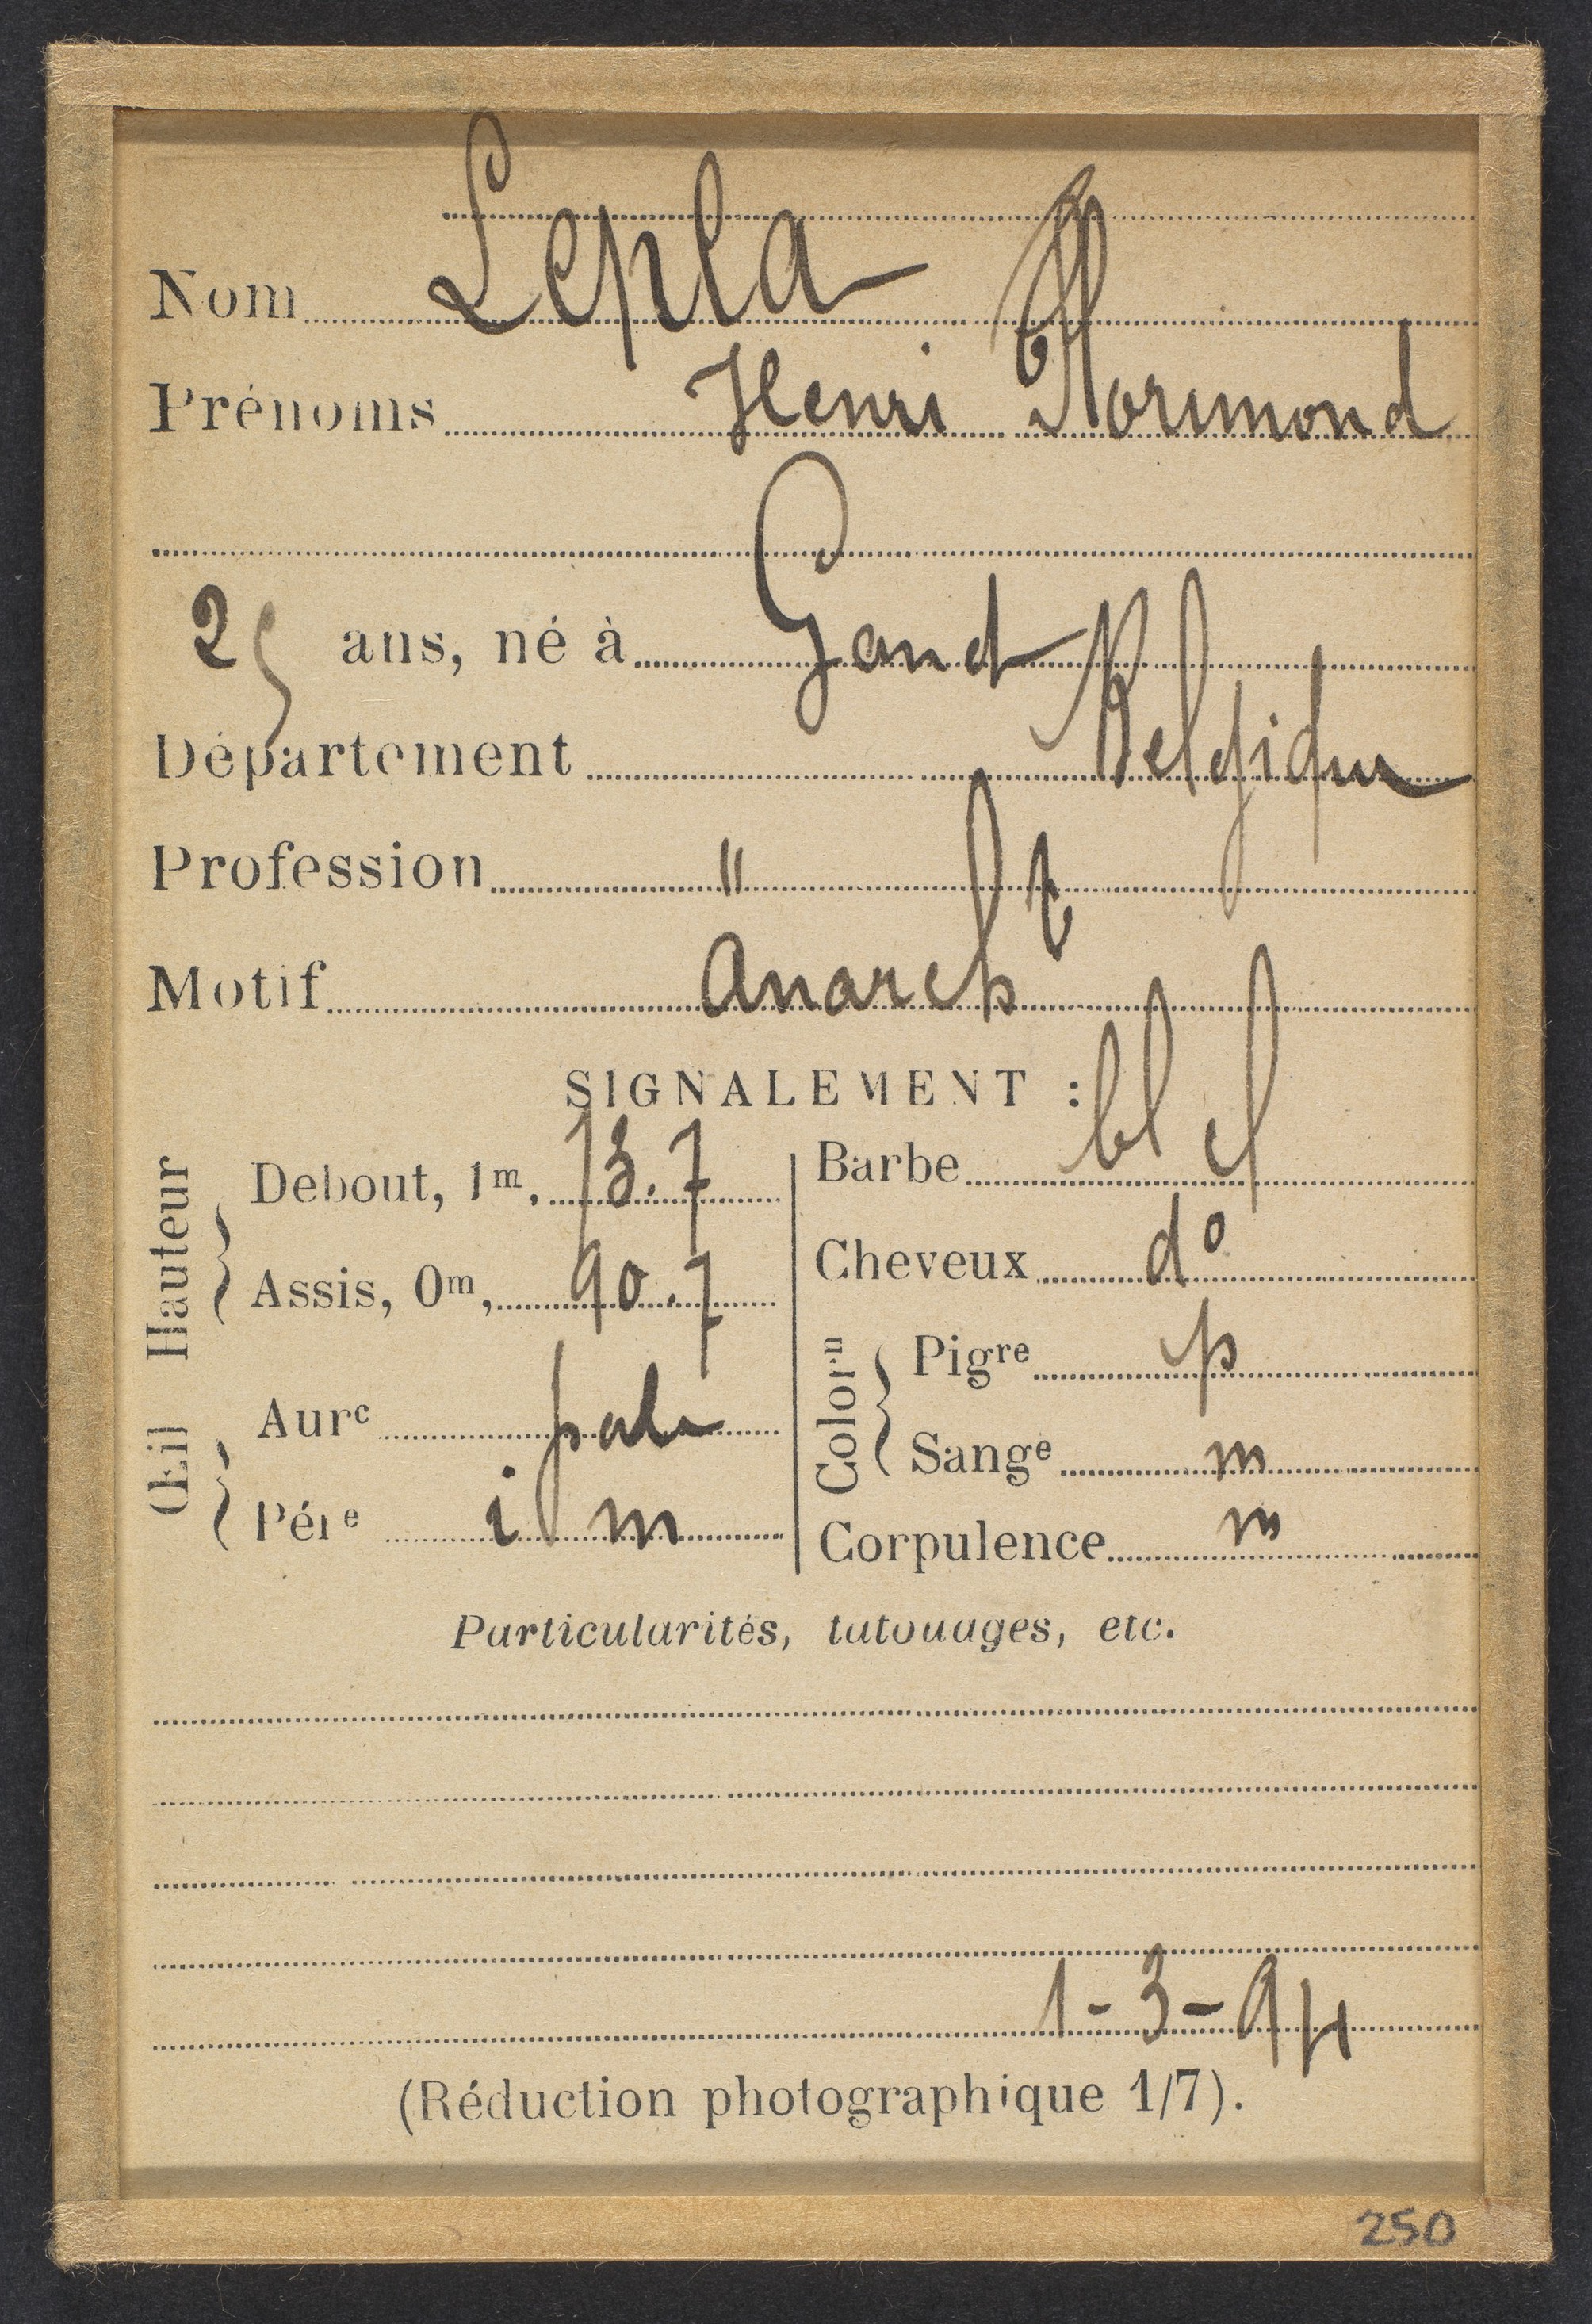 Nom Lepla
Prénoms Henri Florimond
25 ans, né à Gand
Département Belgique
Profession "
Motif anarch te
SIGNALEMENT :
Hauteur
Debout, 1m, 73.7
Assis, 0m, 90.7
Œil
Aurᵉ pale
Périᵉ i m
Barbe bl cl
Cheveux d°
Colorⁿ
Pigʳᵉ p
Sangᵉ m
Corpulence m
Particularités, tatouages, etc.
1-3-94
(Réduction photographique 1/7).
250